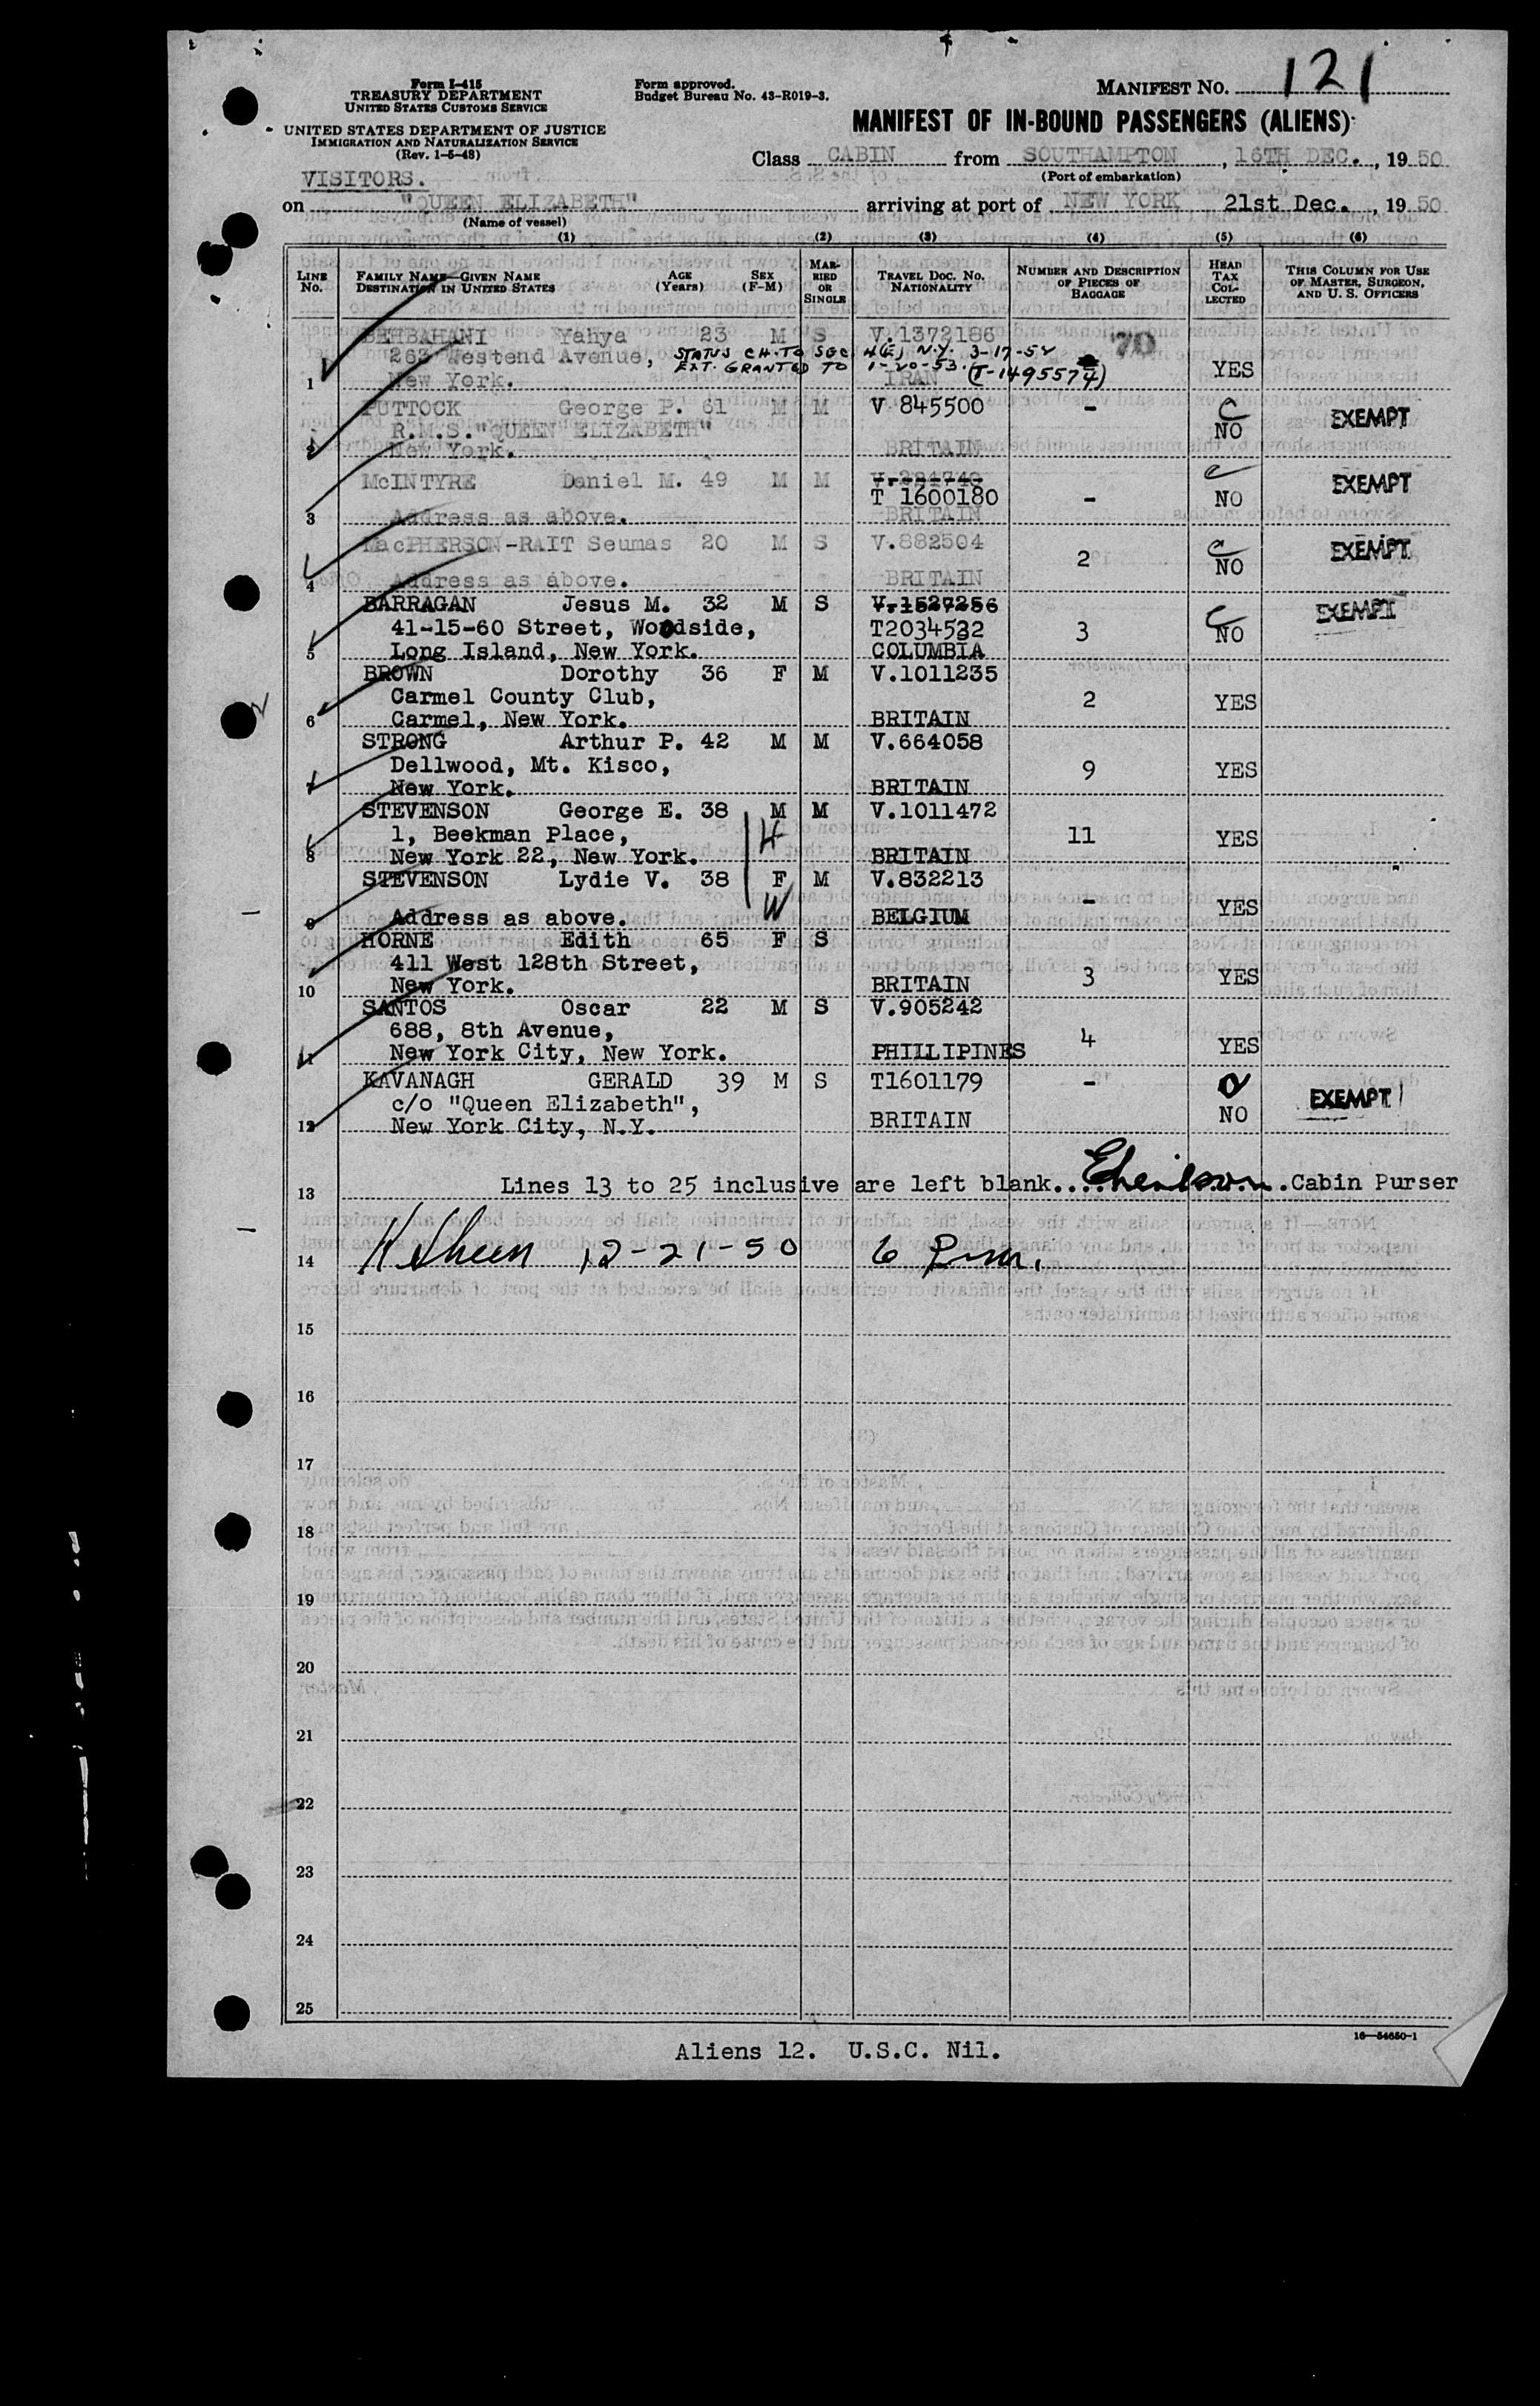 Form I-415
TREASURY DEPARTMENT
UNITED STATES CUSTOMS SERVICE
UNITED STATES DEPARTMENT OF JUSTICE
IMMIGRATION AND NATURALIZATION SERVICE
(Rev. 1-5-48)
Form approved.
Budget Bureau No. 43-R019-3.
MANIFEST NO. 121
MANIFEST OF IN-BOUND PASSENGERS (ALIENS)
Class CABIN from SOUTHAMPTON, 16TH DEC., 19 50
(Port of embarkation)
VISITORS.
on "QUEEN ELIZABETH" arriving at port of NEW YORK 21st Dec., 19 50
(Name of vessel)
(1) (2) (3) (4) (5) (6)
LINE NO. FAMILY NAME—GIVEN NAME DESTINATION IN UNITED STATES AGE (Years) SEX (F-M) MARRIED OR SINGLE TRAVEL DOC. NO. NATIONALITY NUMBER AND DESCRIPTION OF PIECES OF BAGGAGE HEAD TAX COLLECTED THIS COLUMN FOR USE OF MASTER, SURGEON, AND U. S. OFFICERS
BEHBAHANI Yahya 23 M S V.1372186 70
263 Westend Avenue, STATUS CH. TO SEC 4(E) N.Y. 3-17-52
EXT. GRANTED TO 1-20-53. (T-1495574)
1 New York. IRAN YES
PUTTOCK George P. 61 M M V 845500 - C EXEMPT
R.M.S."QUEEN ELIZABETH" NO
2 New York. BRITAIN
McINTYRE Daniel M. 49 M M V.284740 C EXEMPT
T 1600180 - NO
3 Address as above. BRITAIN
MacPHERSON-RAIT Seumas 20 M S V.882504 2 C NO EXEMPT
4 Address as above. BRITAIN
BARRAGAN Jesus M. 32 M S V.1527256 C EXEMPT
41-15-60 Street, Woodside, T2034532 3 NO
5 Long Island, New York. COLUMBIA
BROWN Dorothy 36 F M V.1011235
Carmel County Club, 2 YES
6 Carmel, New York. BRITAIN
STRONG Arthur P. 42 M M V.664058
Dellwood, Mt. Kisco, 9 YES
7 New York. BRITAIN
STEVENSON George E. 38 M M V.1011472
1, Beekman Place, H 11 YES
8 New York 22, New York. BRITAIN
STEVENSON Lydie V. 38 F M V.832213
W - YES
9 Address as above. BELGIUM
HORNE Edith 65 F S
411 West 128th Street, 3 YES
10 New York. BRITAIN
SANTOS Oscar 22 M S V.905242
688, 8th Avenue, 4 YES
11 New York City, New York. PHILLIPINES
KAVANAGH GERALD 39 M S T1601179 -
c/o "Queen Elizabeth", NO EXEMPT
12 New York City, N.Y. BRITAIN
13 Lines 13 to 25 inclusive are left blank.... Cabin Purser
14 12-21-50 6 P.m.
15
16
17
18
19
20
21
22
23
24
25
16—54650-1
Aliens 12. U.S.C. Nil.